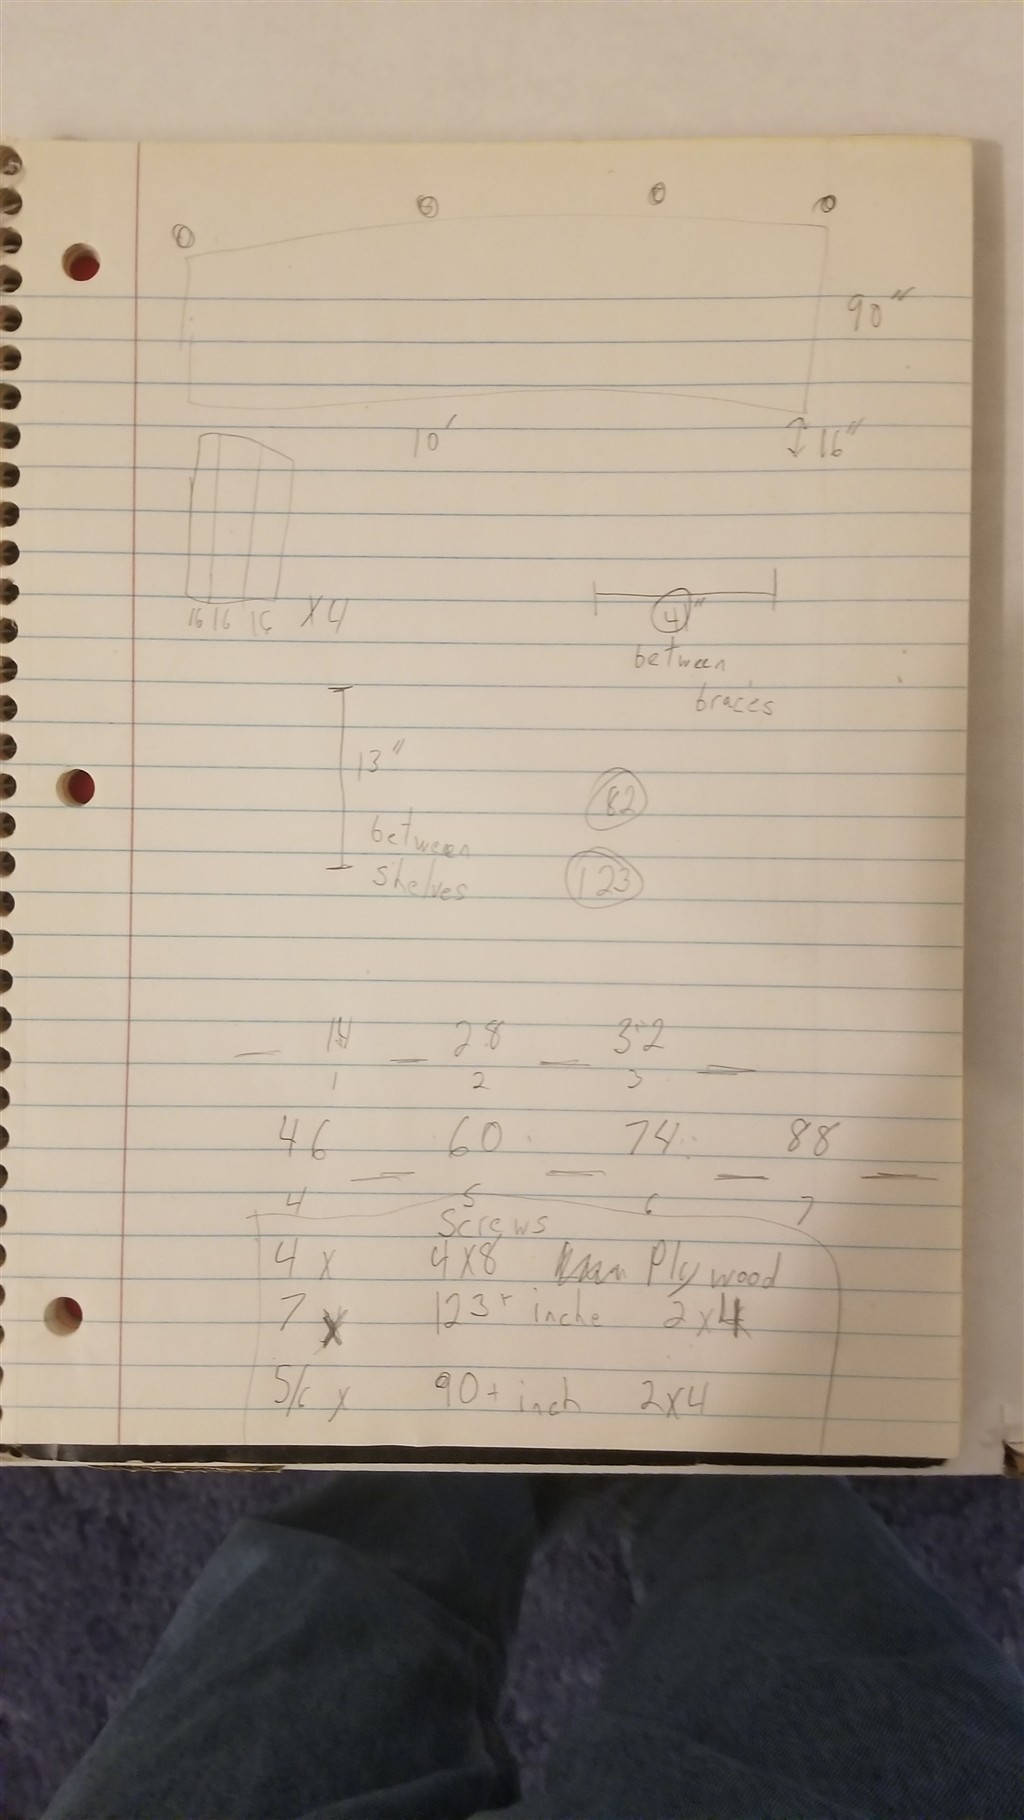 90"
10'
16"
16 16 16 X4
41"
between
braces
13"
between
shelves
82
123
14 28 32
1 2 3
46 60 74 88
4 5 6 7
Screws
4 x 4x8 Plywood
7 x 123+ inche 2x4
5/6 x 90+ inch 2x4